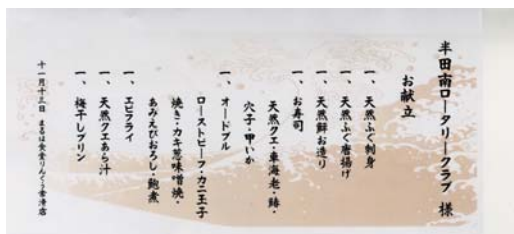 半田南ロータリークラブ 様
お献立
一、天然ふぐ刺身
一、天然ふぐ唐揚げ
一、天然鮮お造り
一、お寿司
天然クエ・車海老・鰆・
穴子・甲いか
一、オードブル
ローストビーフ・カニ玉子
焼き・カキ葱味噌焼・
あみえびおろし・鮑煮
一、エビフライ
一、天然クエあら汁
一、梅干しプリン
十一月十三日 まるは食堂りんくう常滑店